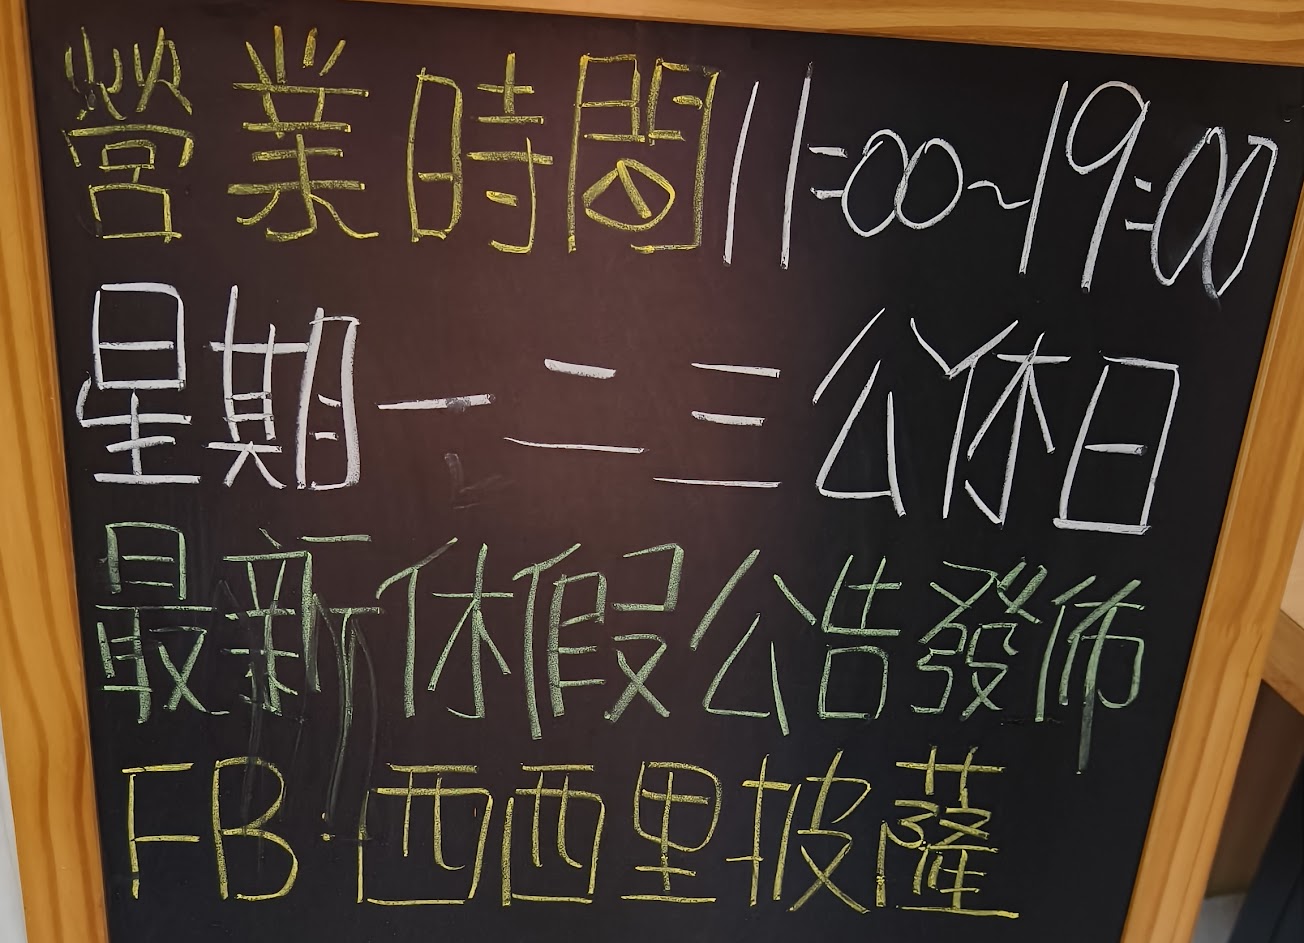 營業時間11:00~19:00
星期一二三公休日
最新休假公告發佈
FB:西西里披薩